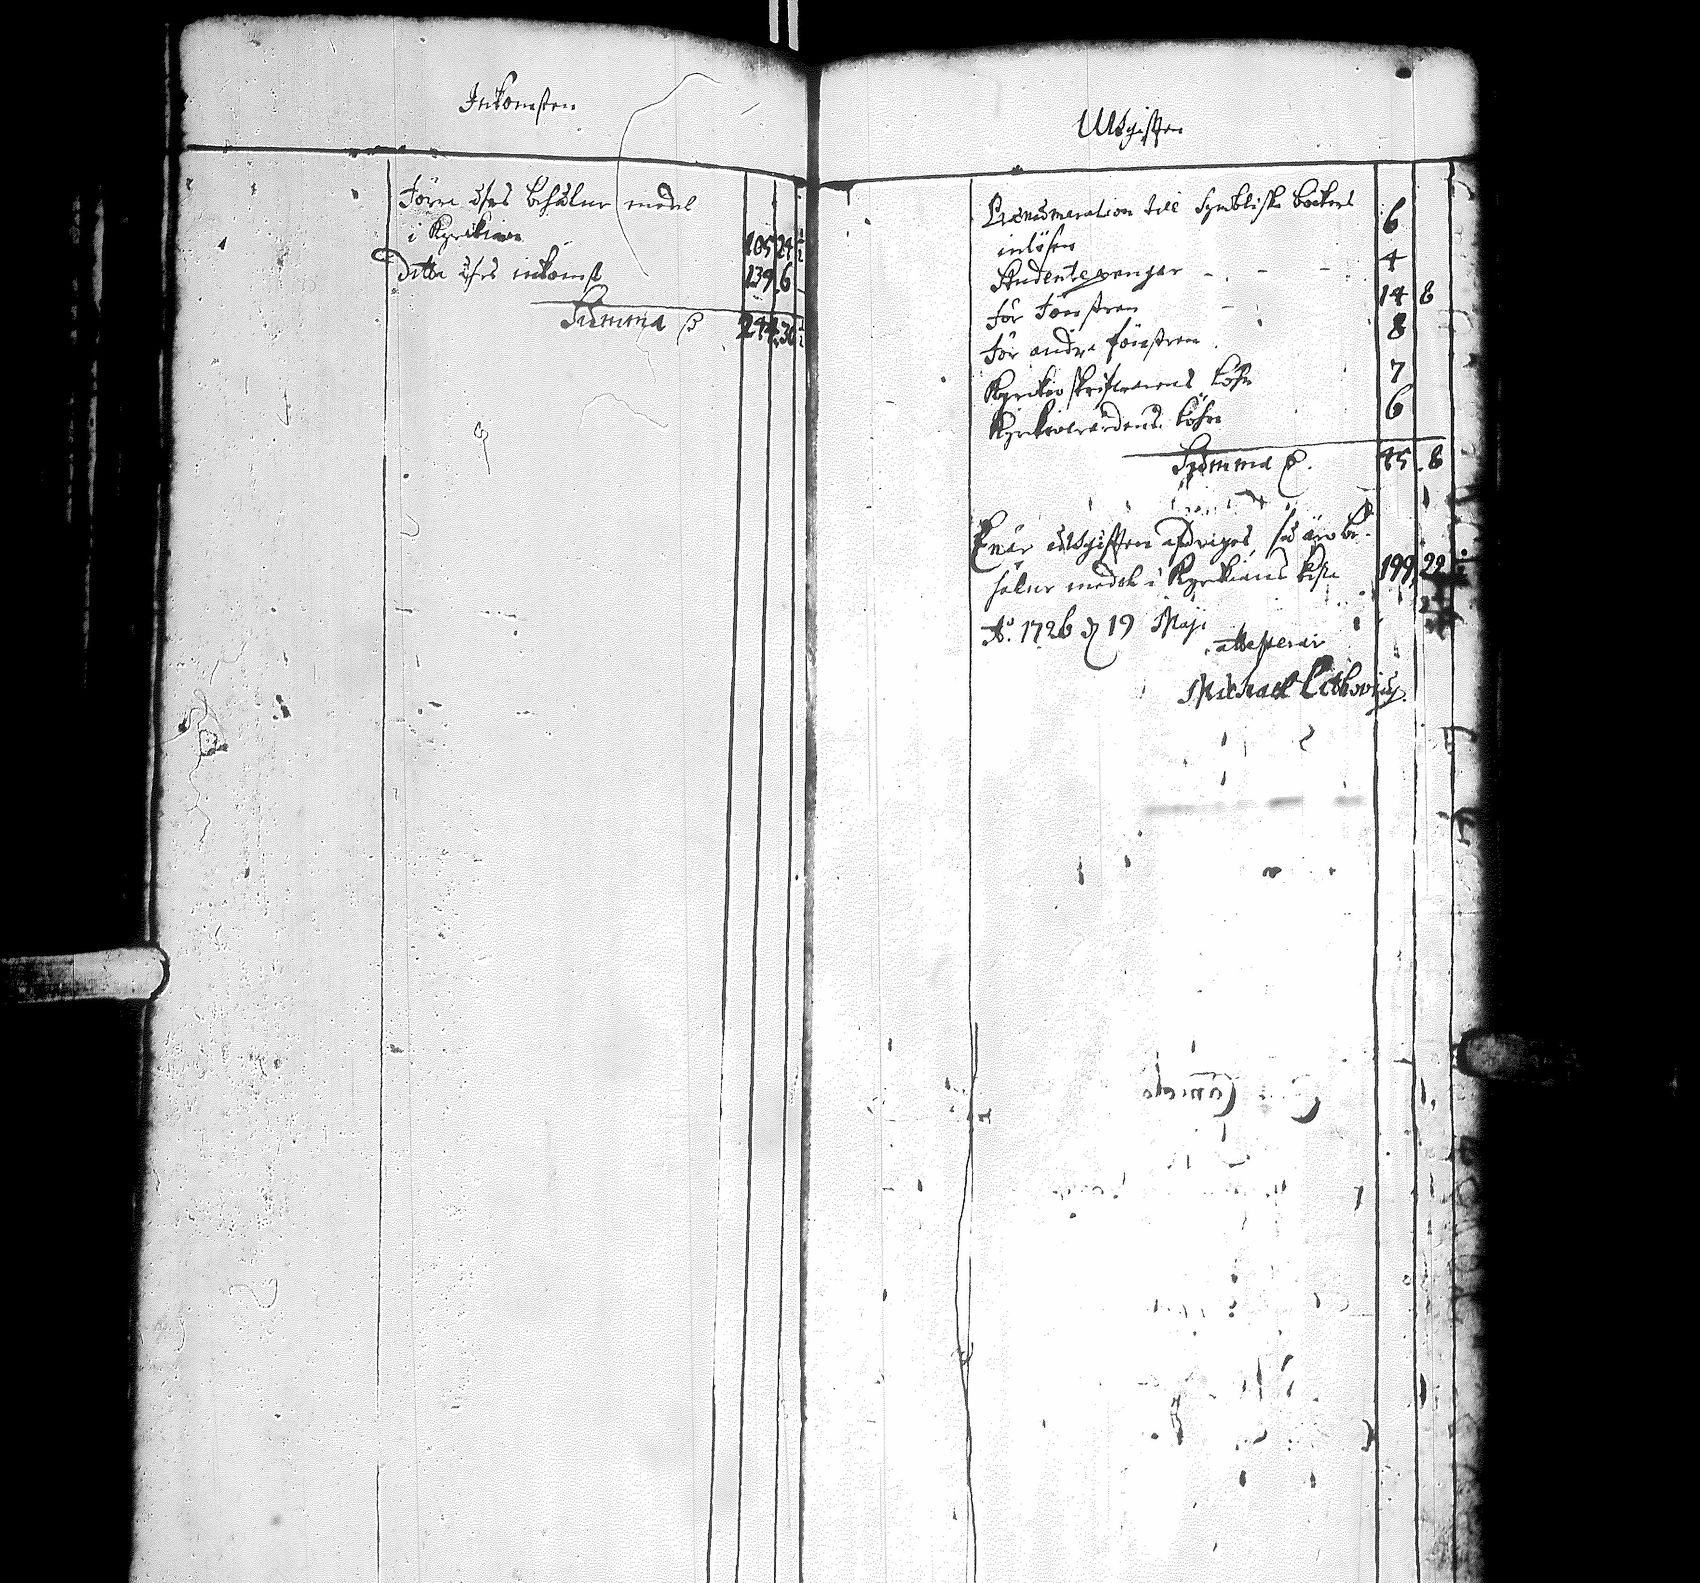 Inkomsten
Förra åhrs behåldne medel
i Kyrkian 105 24 ½
Ditta åhrs inkomst 139 6
Summa 244 30 ½
Utgifften
Prænumeration till Symboliske böckers 6
inlösen
Studentepengar 4
För Fönstren 14 8
För andra fönstren 8
Kyrkioskrifvarens löhn 7
Kyrkiovärdens löhn 6
Summa 45 8
När utgifften afdrages, så äro be-
hålne medel i Kyrkians kista 199 22 ½
Ao. 1726 d 19 Maji
attesterar
Michael Lithovius